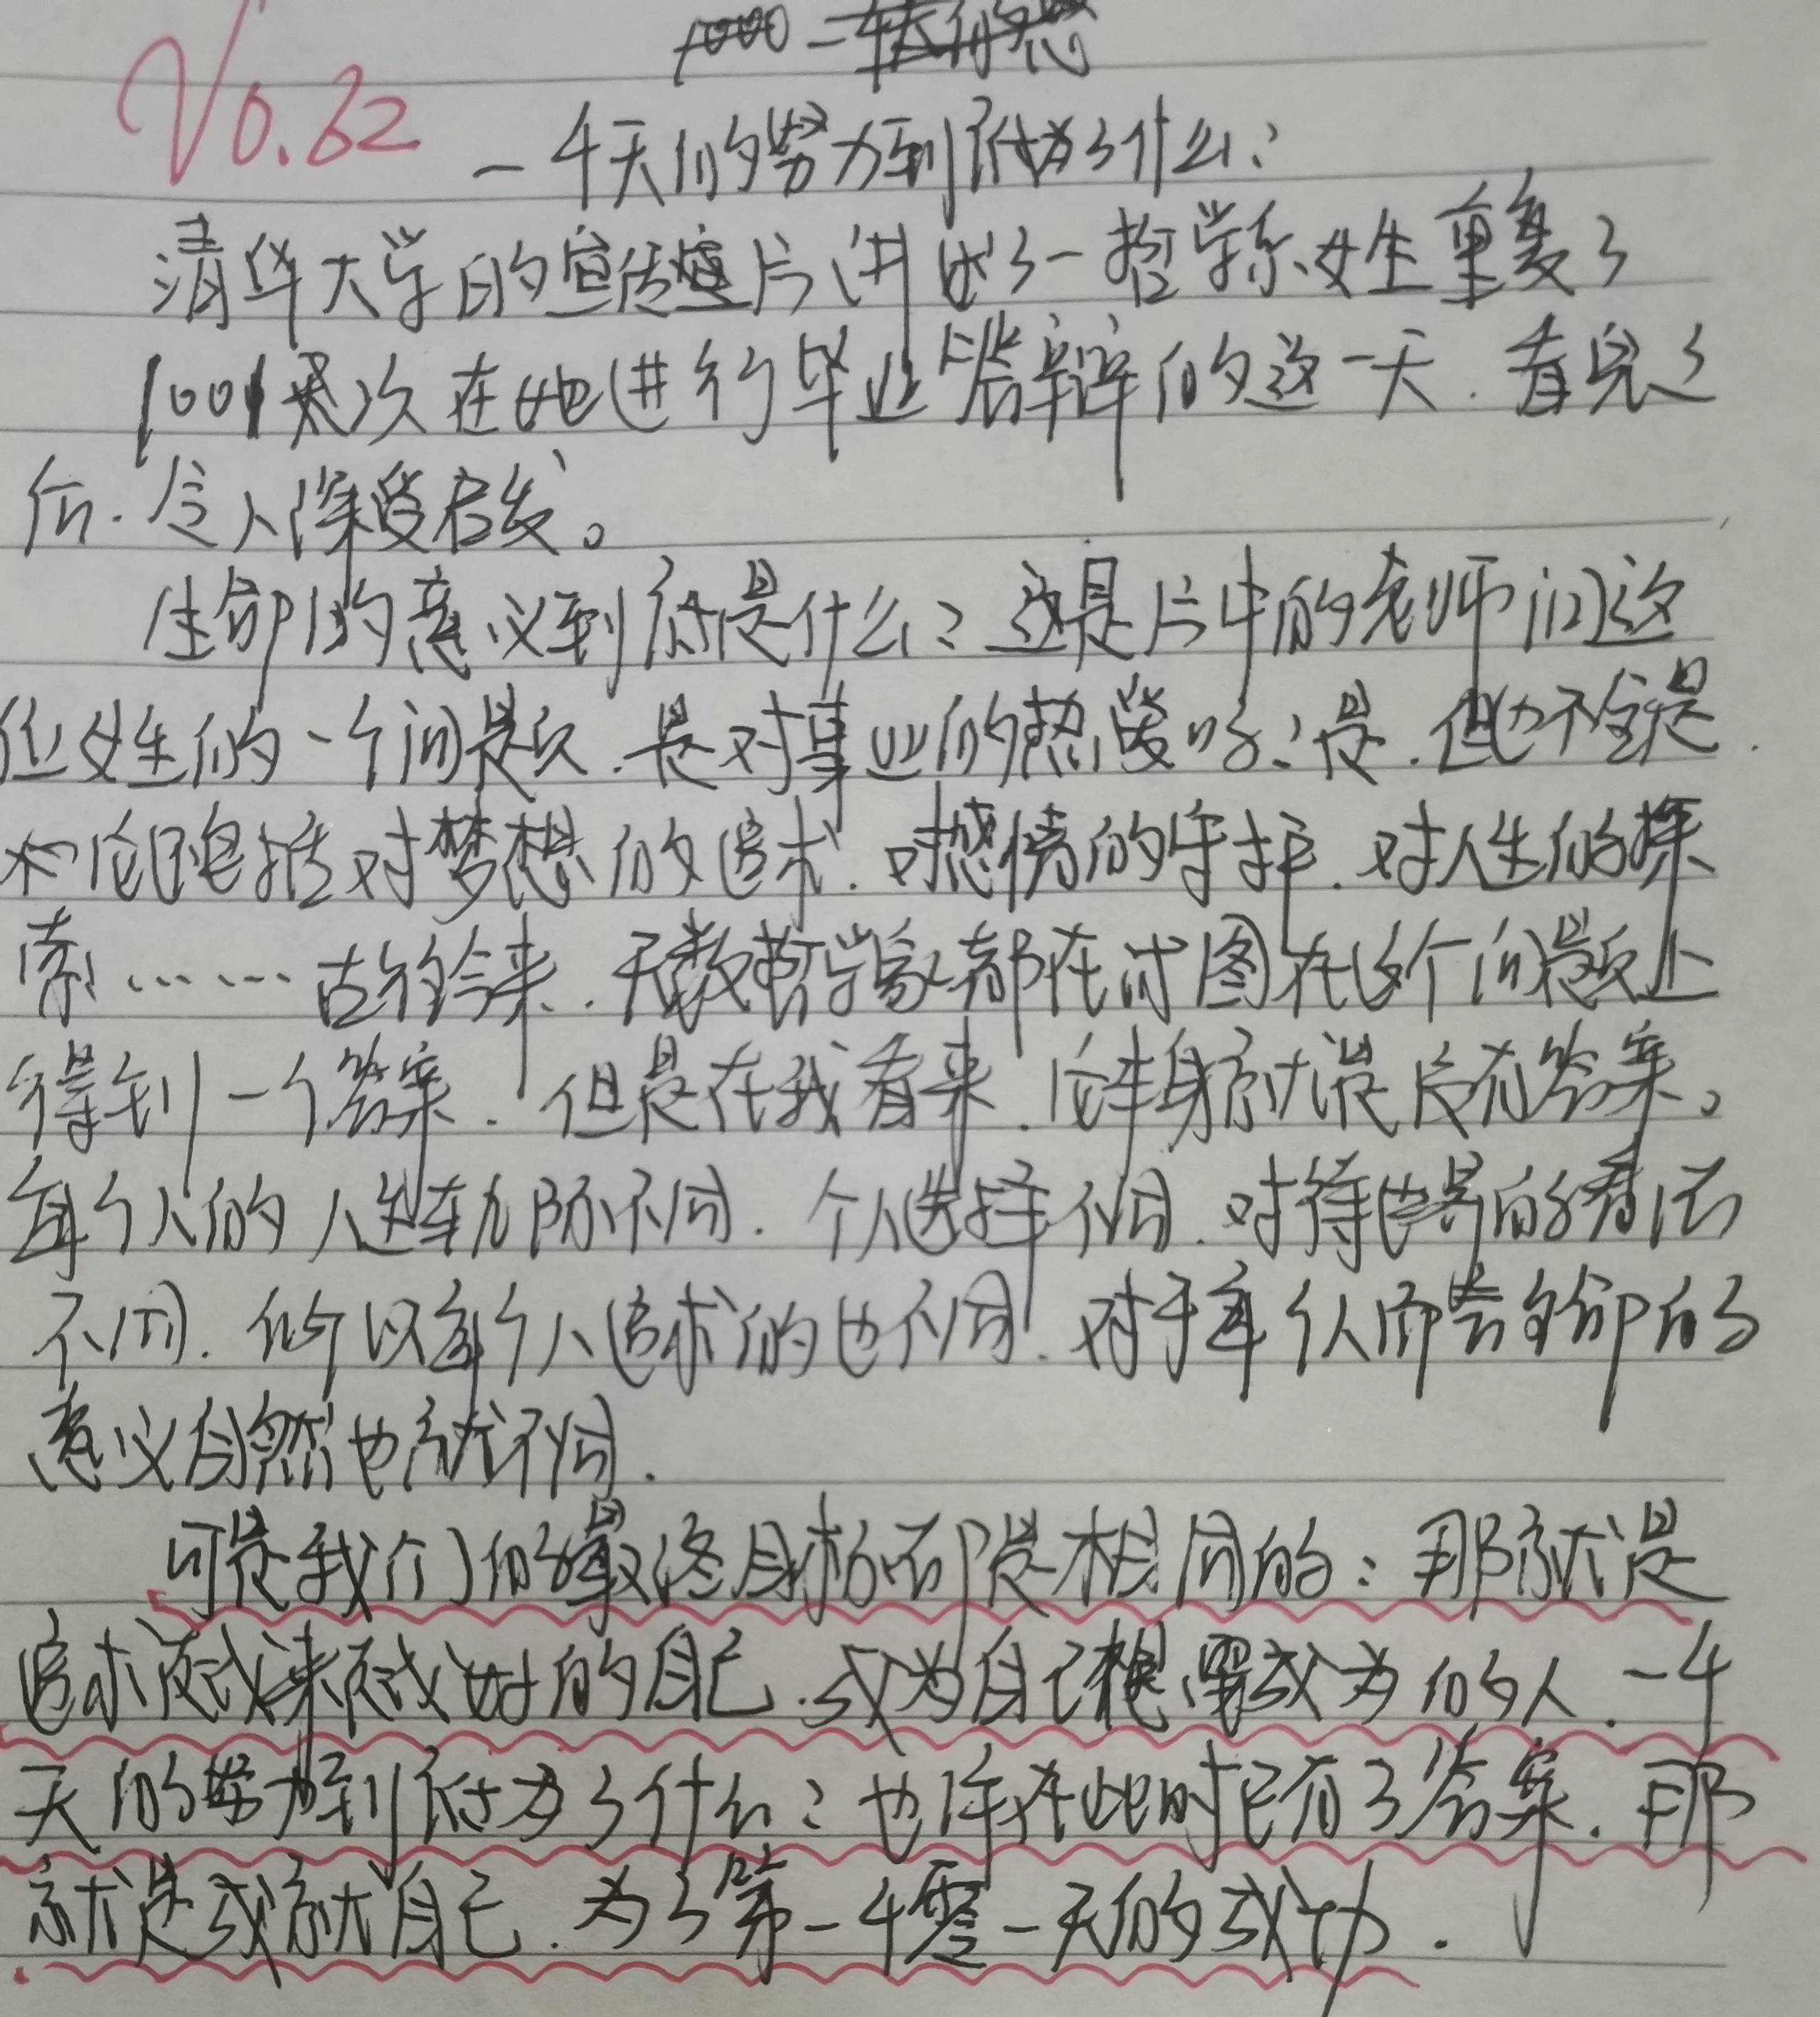 V0.32
一千天的努力到底为了什么?
清华大学的宣传片讲述了一哲学系女生重复了
1001次在她进行毕业答辩的这一天.看完之
后.令人深受启发。
生命的意义到底是什么?这是片中的老师问这
位女生的一个问题.是对事业的热爱吗?是.但也不全是.
它包括对梦想的追求.对感情的守护.对人生的探
索……古往今来.无数哲学家都在试图在这个问题上
得到一个答案.但是在我看来.它本身就是没有答案。
每个人的人生轨际不同.个人选择不同.对待世界的看法
不同.所以每个人追求的也不同.对于每个人而言生命的
意义自然也就不同.
可是我们的最终目标却是相同的:那就是
追求或未来或好的自己.成为自己想要成为的人.一千
天的努力到底为了什么?也许在此时已有了答案.那
就是成就自己.为了第一千零一天的成功.